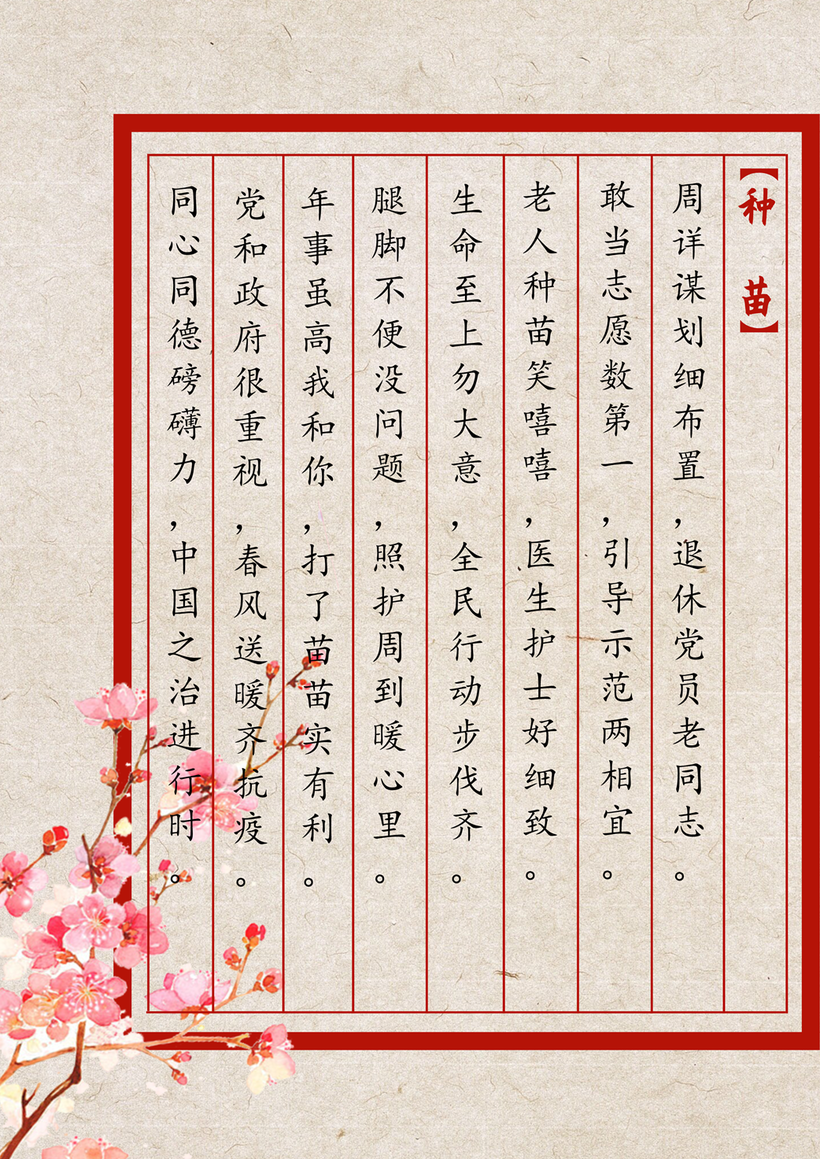 【种 苗】
周详谋划细布置，退休党员老同志。
敢当志愿数第一，引导示范两相宜。
老人种苗笑嘻嘻，医生护士好细致。
生命至上勿大意，全民行动步伐齐。
腿脚不便没问题，照护周到暖心里。
年事虽高我和你，打了苗苗实有利。
党和政府很重视，春风送暖齐抗疫。
同心同德磅礴力，中国之治进行时。